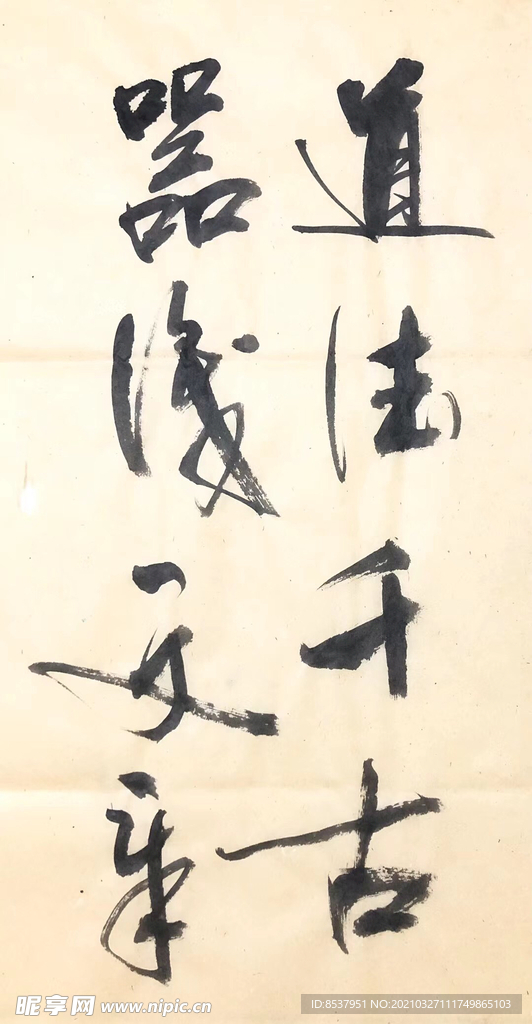 道德千古
器識文章
昵享网 www.nipic.cn
ID:8537951 NO:20210327111749865103